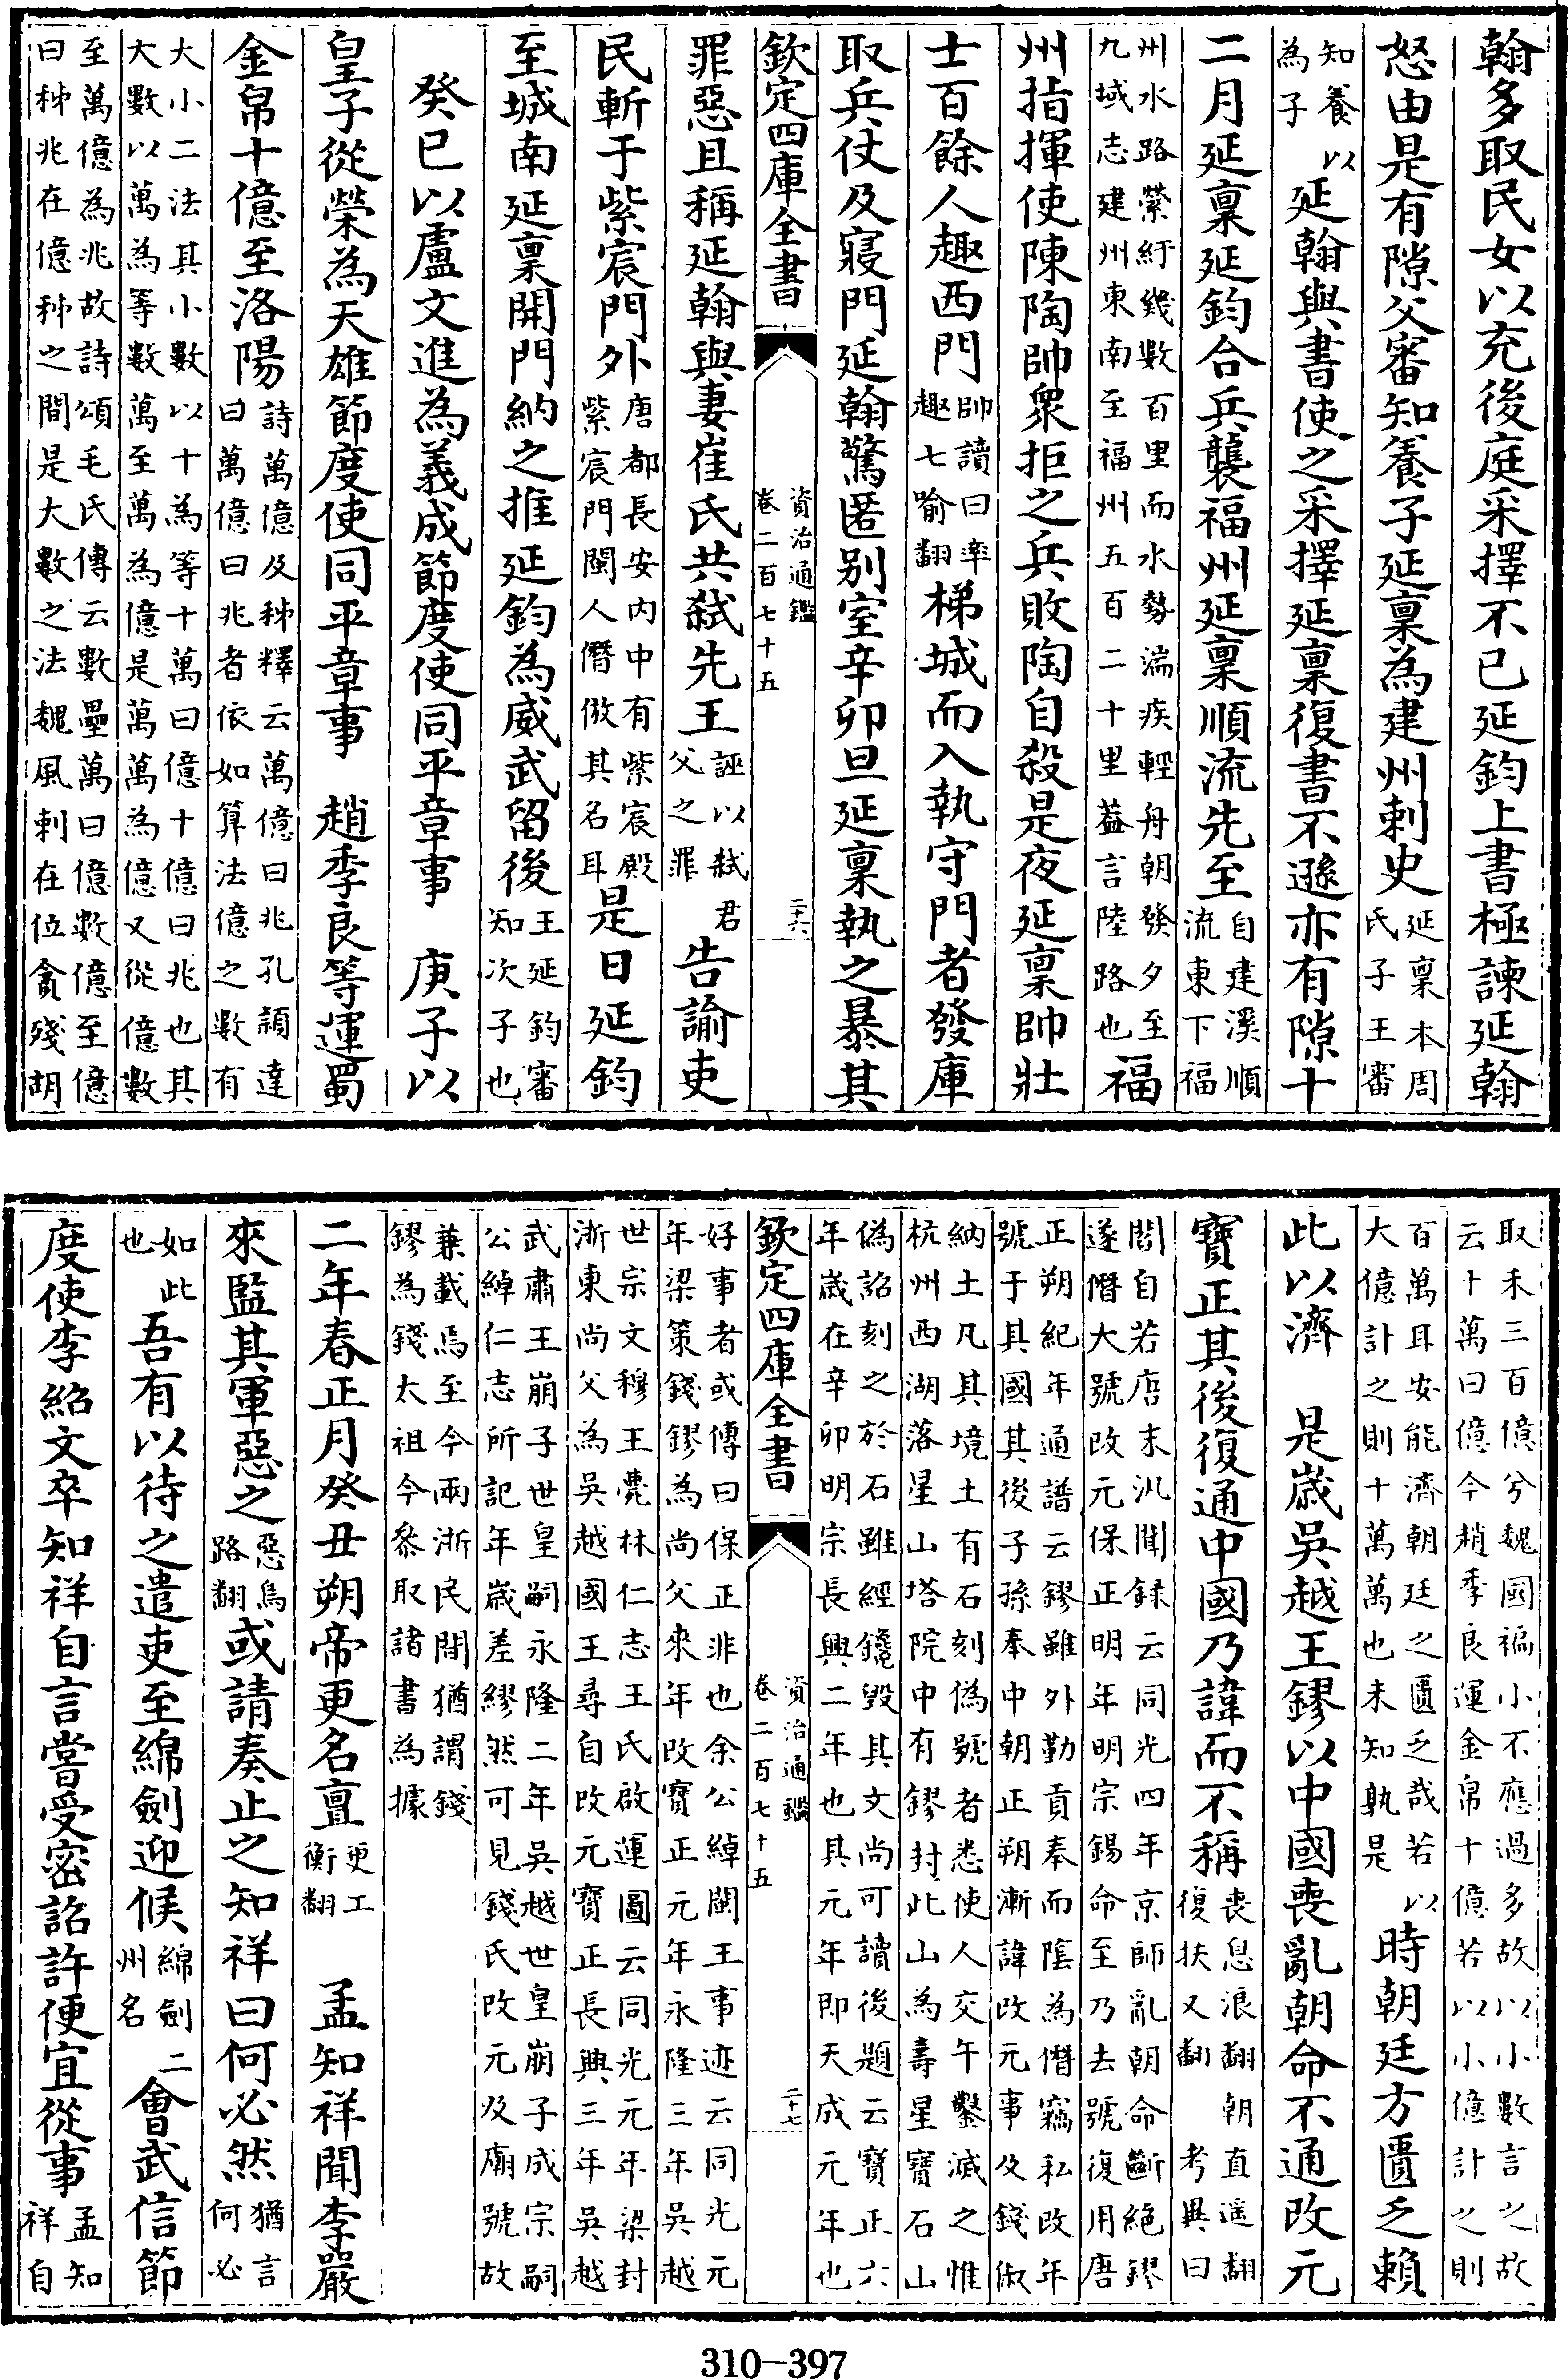 翰多取民女以充後庭采擇不已延鈞上書極諫延翰
怒由是有隙父審知養子延稟為建州刺史延稟本周氏子王審
知養以為子延翰與書使之采擇延稟復書不遜亦有隙十
二月延稟延鈞合兵襲福州延稟順流先至自建溪順流東下福
州水路縈紆幾數百里而水勢湍疾輕舟朝發夕至九域志建州東南至福州五百二十里葢言陸路也福
州指揮使陳陶帥衆拒之兵敗陶自殺是夜延稟帥壯
士百餘人趣西門帥讀曰率趣七喻翻梯城而入執守門者發庫
取兵仗及寢門延翰驚匿别室辛卯旦延稟執之暴其
欽定四庫全書 資治通鑑卷二百七十五 二十六
罪惡且稱延翰與妻崔氏共弑先王誣以弑君父之罪告諭吏
民斬于紫宸門外唐都長安内中有紫宸殿紫宸門閩人僭倣其名耳是日延鈞
至城南延稟開門納之推延鈞為威武留後王延鈞審知次子也
癸巳以盧文進為義成節度使同平章事 庚子以
皇子從榮為天雄節度使同平章事 趙季良等運蜀
金帛十億至洛陽詩萬億及秭釋云萬億曰兆孔頴達曰萬億曰兆者依如算法億之數有
大小二法其小數以十為等十萬曰億十億曰兆也其大數以萬為等數萬至萬為億是萬萬為億又從億數
至萬億為兆故詩頌毛氏傳云數壘萬曰億數億至億曰秭兆在億秭之間是大數之法魏風刺在位貪殘胡
取禾三百億兮魏國褊小不應過多故以小數言之故云十萬曰億今趙季良運金帛十億若以小億計之則
百萬耳安能濟朝廷之匱乏哉若以大億計之則十萬萬也未知孰是時朝廷方匱乏賴
此以濟 是歲吳越王鏐以中國喪亂朝命不通改元
寶正其後復通中國乃諱而不稱喪息浪翻朝直遥翻復扶又翻考異曰
閻自若唐末汎聞録云同光四年京師亂朝命斷絶鏐遂僭大號改元保正明年明宗錫命至乃去號復用唐
正朔紀年通譜云鏐雖外勤貢奉而陰為僭竊私改年號于其國其後子孫奉中朝正朔漸諱改元事及錢俶
納土凡其境土有石刻偽號者悉使人交午鑿滅之惟杭州西湖落星山塔院中有鏐封此山為壽星寶石山
偽詔刻之於石雖經鑱毁其文尚可讀後題云寶正六年歲在辛卯明宗長興二年也其元年即天成元年也
欽定四庫全書 資治通鑑卷二百七十五 二十七
好事者或傳曰保正非也余公綽閩王事迹云同光元年梁策錢鏐為尚父來年改寶正元年永隆三年吳越
世宗文穆王薨林仁志王氏啟運圖云同光元年梁封浙東尚父為吳越國王尋自改元寶正長興三年吳越
武肅王崩子世皇嗣永隆二年吳越世皇崩子成宗嗣公綽仁志所記年歲差繆然可見錢氏改元及廟號故
兼載焉至今兩浙民間猶謂錢鏐為錢太祖今叅取諸書為據
二年春正月癸丑朔帝更名亶更工衡翻 孟知祥聞李嚴
來監其軍惡之惡烏路翻或請奏止之知祥曰何必然猶言何必
如此也吾有以待之遣吏至綿劍迎候綿劍二州名會武信節
度使李紹文卒知祥自言嘗受密詔許便宜從事孟知祥自
310-397